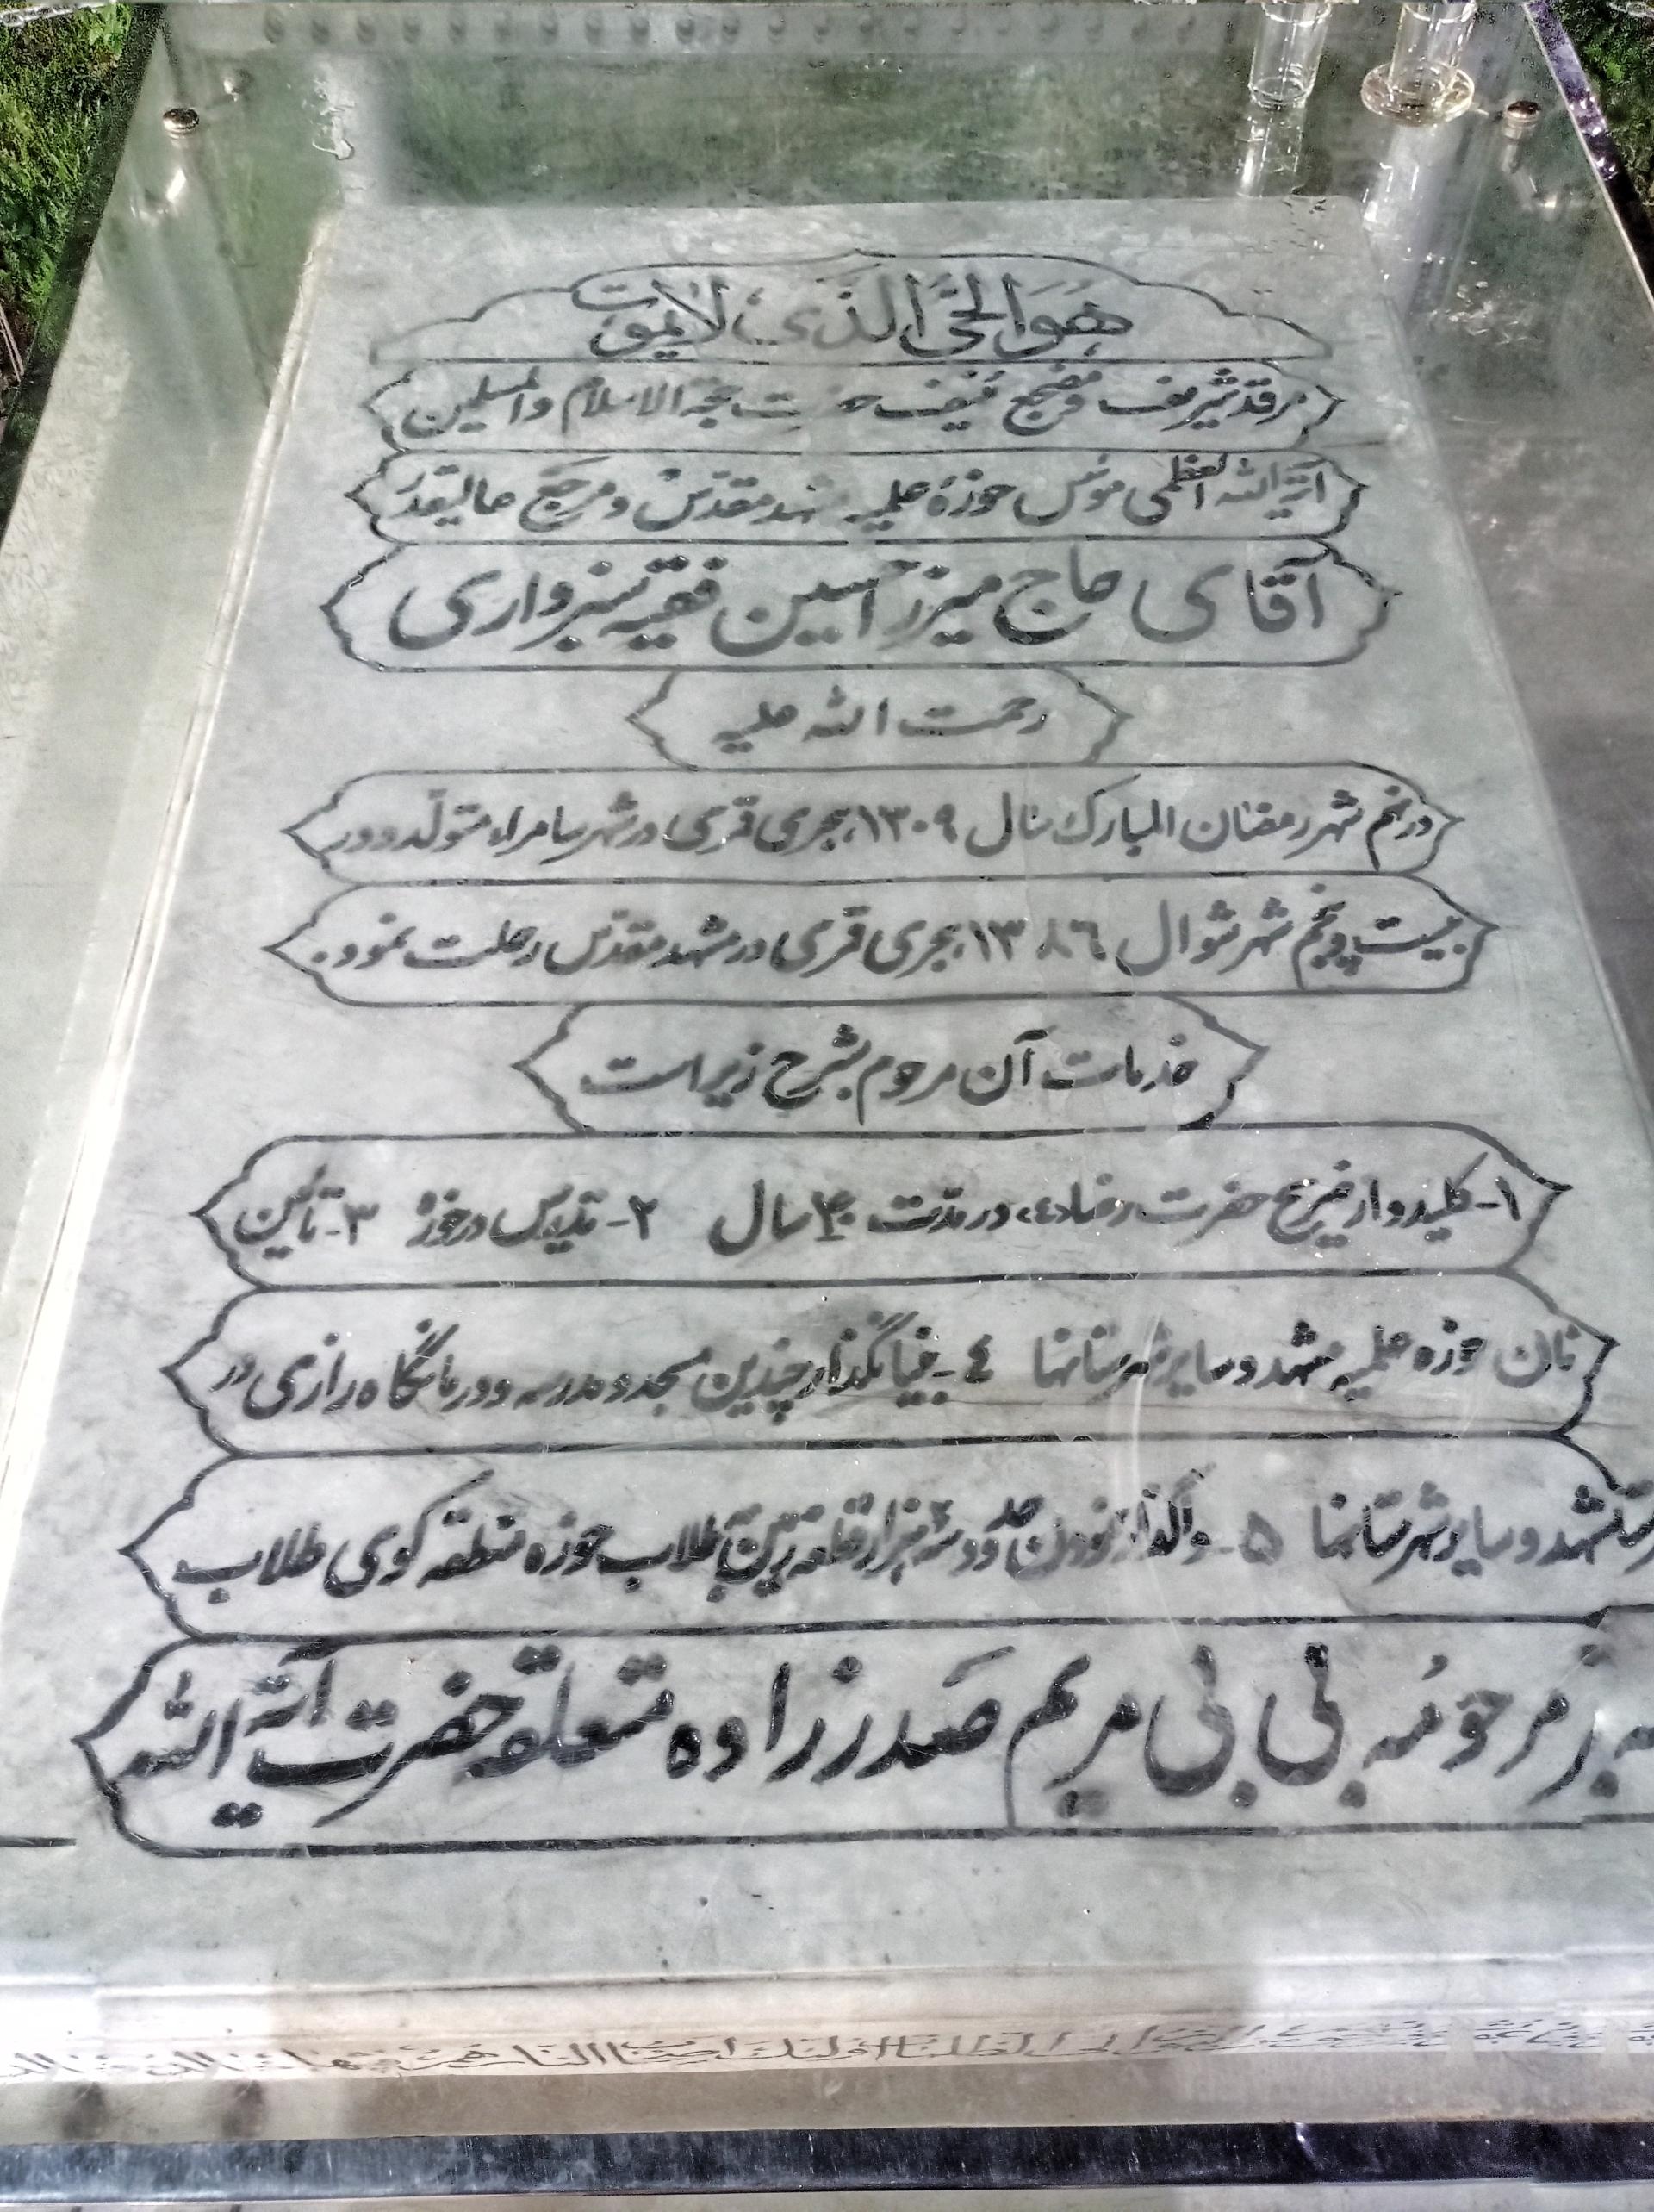 هو الحی الذی لا یموت
مرقد شریف و مضجع منیف حضرت حجة الاسلام والمسلمین
آیة الله العظمی موسس حوزهٔ علمیه مشهد مقدس و مرجع عالیقدر
آقای حاج میرزا حسین فقیه سبزواری
رحمت الله علیه
در پنجم شهر رمضان المبارک سال ۱۳۰۹ هجری قمری در شهر سامراء متولد و در
بیست و پنجم شهر شوال ۱۳۸۶ هجری قمری در مشهد مقدس رحلت نمود.
خدمات آن مرحوم بشرح زیر است
۱- کلیددار ضریح حضرت رضا (ع) در مدت ۴۰ سال ۲- تدریس در حوزه ۳- تأمین
نان حوزه علمیه مشهد و سایر شهرستانها ٤- بنیانگذار چندین مسجد و مدرسه و درمانگاه رازی در
مشهد و سایر شهرستانها ۵- واگذار نمودن صد و شش هزار قطعه زمین بطلاب حوزه منطقه کوی طلاب
مرحومه بی بی مریم صدرزاده متعلقه حضرت آیة الله